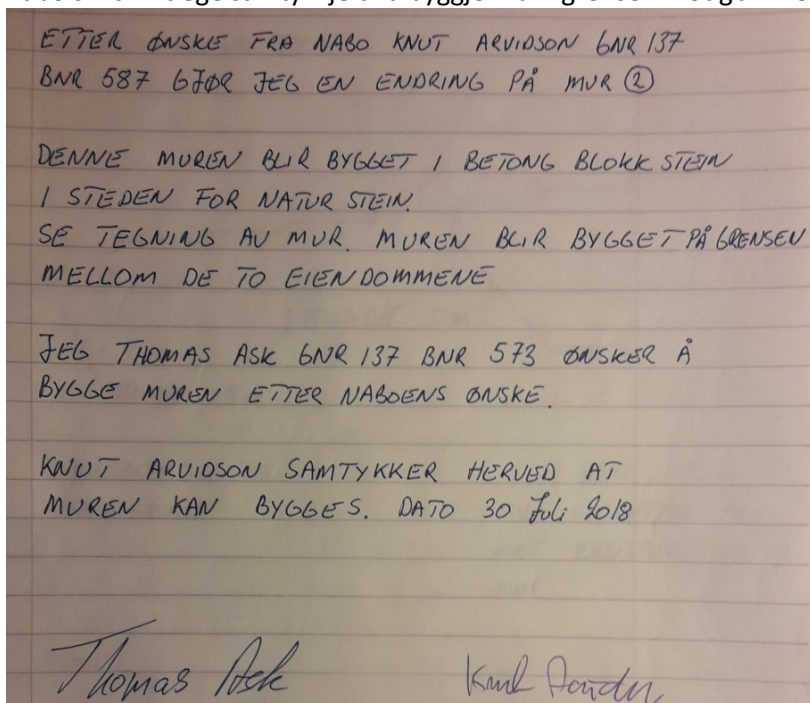 ETTER ØNSKE FRA NABO KNUT ARVIDSON GNR 137
BNR 587 GJØR JEG EN ENDRING PÅ MUR ②
DENNE MUREN BLIR BYGGET I BETONG BLOKK STEIN
I STEDEN FOR NATUR STEIN.
SE TEGNING AV MUR. MUREN BLIR BYGGET PÅ GRENSEN
MELLOM DE TO EIENDOMMENE
JEG THOMAS ASK GNR 137 BNR 573 ØNSKER Å
BYGGE MUREN ETTER NABOENS ØNSKE.
KNUT ARVIDSON SAMTYKKER HERVED AT
MUREN KAN BYGGES. DATO 30 Juli 2018
Thomas Ask Knut